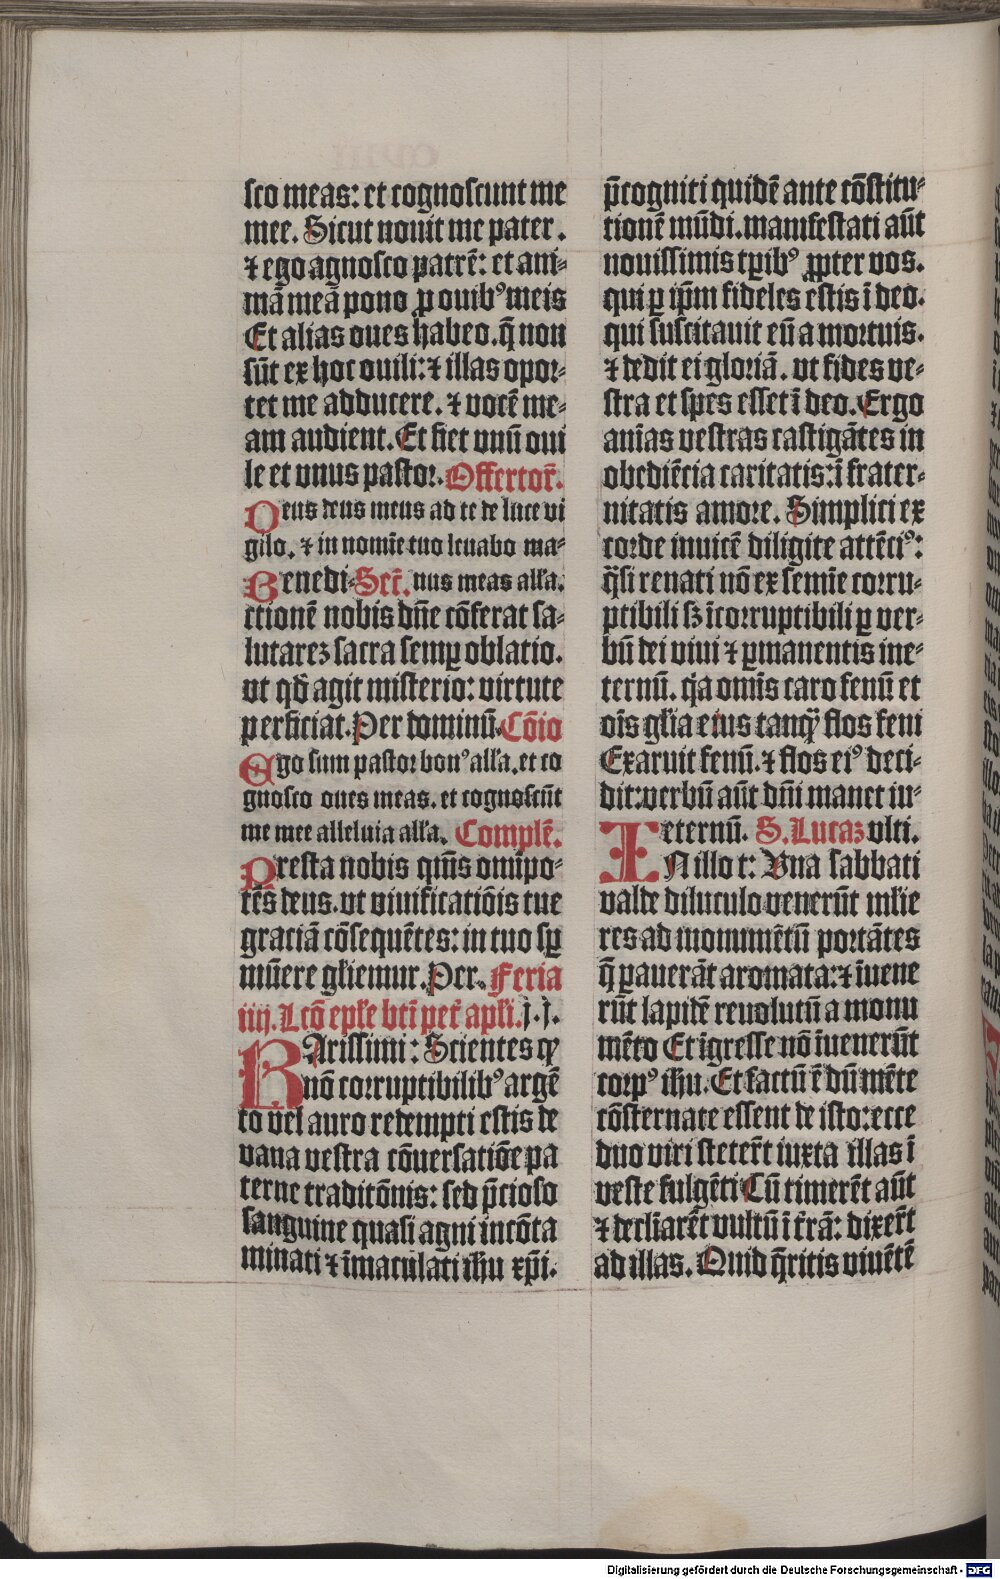 sco meas: et cognoscunt me
mee. Sicut nouit me pater.
⁊ ego agnosco patrē: et ani-
mā meā pono ꝓ ouibꝰ meis
Et alias oues habeo. q̄ non
sūt ex hoc ouili: ⁊ illas opor-
tet me adducere. ⁊ vocē me-
am audient. Et fiet vnū oui
le et vnus pastor. Offertor̄.
Deus deus meus ad te de luce vi
gilo. ⁊ in nomīe tuo leuabo ma-
Benedi- Secr̄. nus meas all'a.
ctionē nobis dn̄e cōferat sa-
lutareꝫ sacra semꝑ oblatio.
vt qd̄ agit misterio: virtute
perficiat. Per dominū. Cōio
Ego sum pastor bonꝰ all'a. et co
gnosco oues meas. et cognoscūt
me mee alleluia all'a. Complē.
Presta nobis qm̄s omīpo-
tēs deus. vt viuificatiōis tue
graciā cōsequētes: in tuo sꝑ
mūere gl'iemur. Per. Feria
iiij. Lcō epl'e bt̄i pet̄ apl'i. j. j.
KArissimi: Scientes ꝙ
nō corruptibilibꝰ argē
to vel auro redempti estis de
vana vestra cōuersatiōe pa
terne traditōnis: sed p̄cioso
sanguine quasi agni incōta
minati ⁊ īmaculati ih̄u xp̄i.
p̄cogniti quidē ante cōstitu-
tionē mūdi. manifestati aūt
nouissimis tꝑibꝰ ꝓpter vos.
qui ꝑ ip̄m fideles estis ī deo.
qui suscitauit eū a mortuis.
⁊ dedit ei gloriā. vt fides ve-
stra et spes esset ī deo. Ergo
aīas vestras castigātes in
obediēcia caritatis: ī frater-
nitatis amore. Simplici ex
corde inuicē diligite attēciꝰ:
q̄si renati nō ex semīe corru-
ptibili sꝫ īcorruptibili ꝑ ver-
bū dei viui ⁊ ꝑmanentis ine-
ternū. q̄a omīs caro fenū et
oīs gl'ia eius tanꝙ̄ flos feni
Exaruit fenū. ⁊ flos eiꝰ deci-
dit: verbū aūt dn̄i manet in-
eternū. S. Lucaꝫ vlti.
IN illo t: Una sabbati
valde diluculo venerūt ml'ie
res ad monumētū portātes
q̄ ꝑauerāt aromata: ⁊ īuene
rūt lapidē reuolutū a monu
mēto Et īgresse nō īuenerūt
corpꝰ ih̄u. Et factū ē dū mēte
cōsternate essent de isto: ecce
duo viri steter̄t iuxta illas ī
veste fulgēti Cū timerēt aūt
⁊ declīarēt vultū ī t̄rā: dixer̄t
ad illas. Quid q̄ritis viuētē
Digitalisierung gefördert durch die Deutsche Forschungsgemeinschaft - DFG